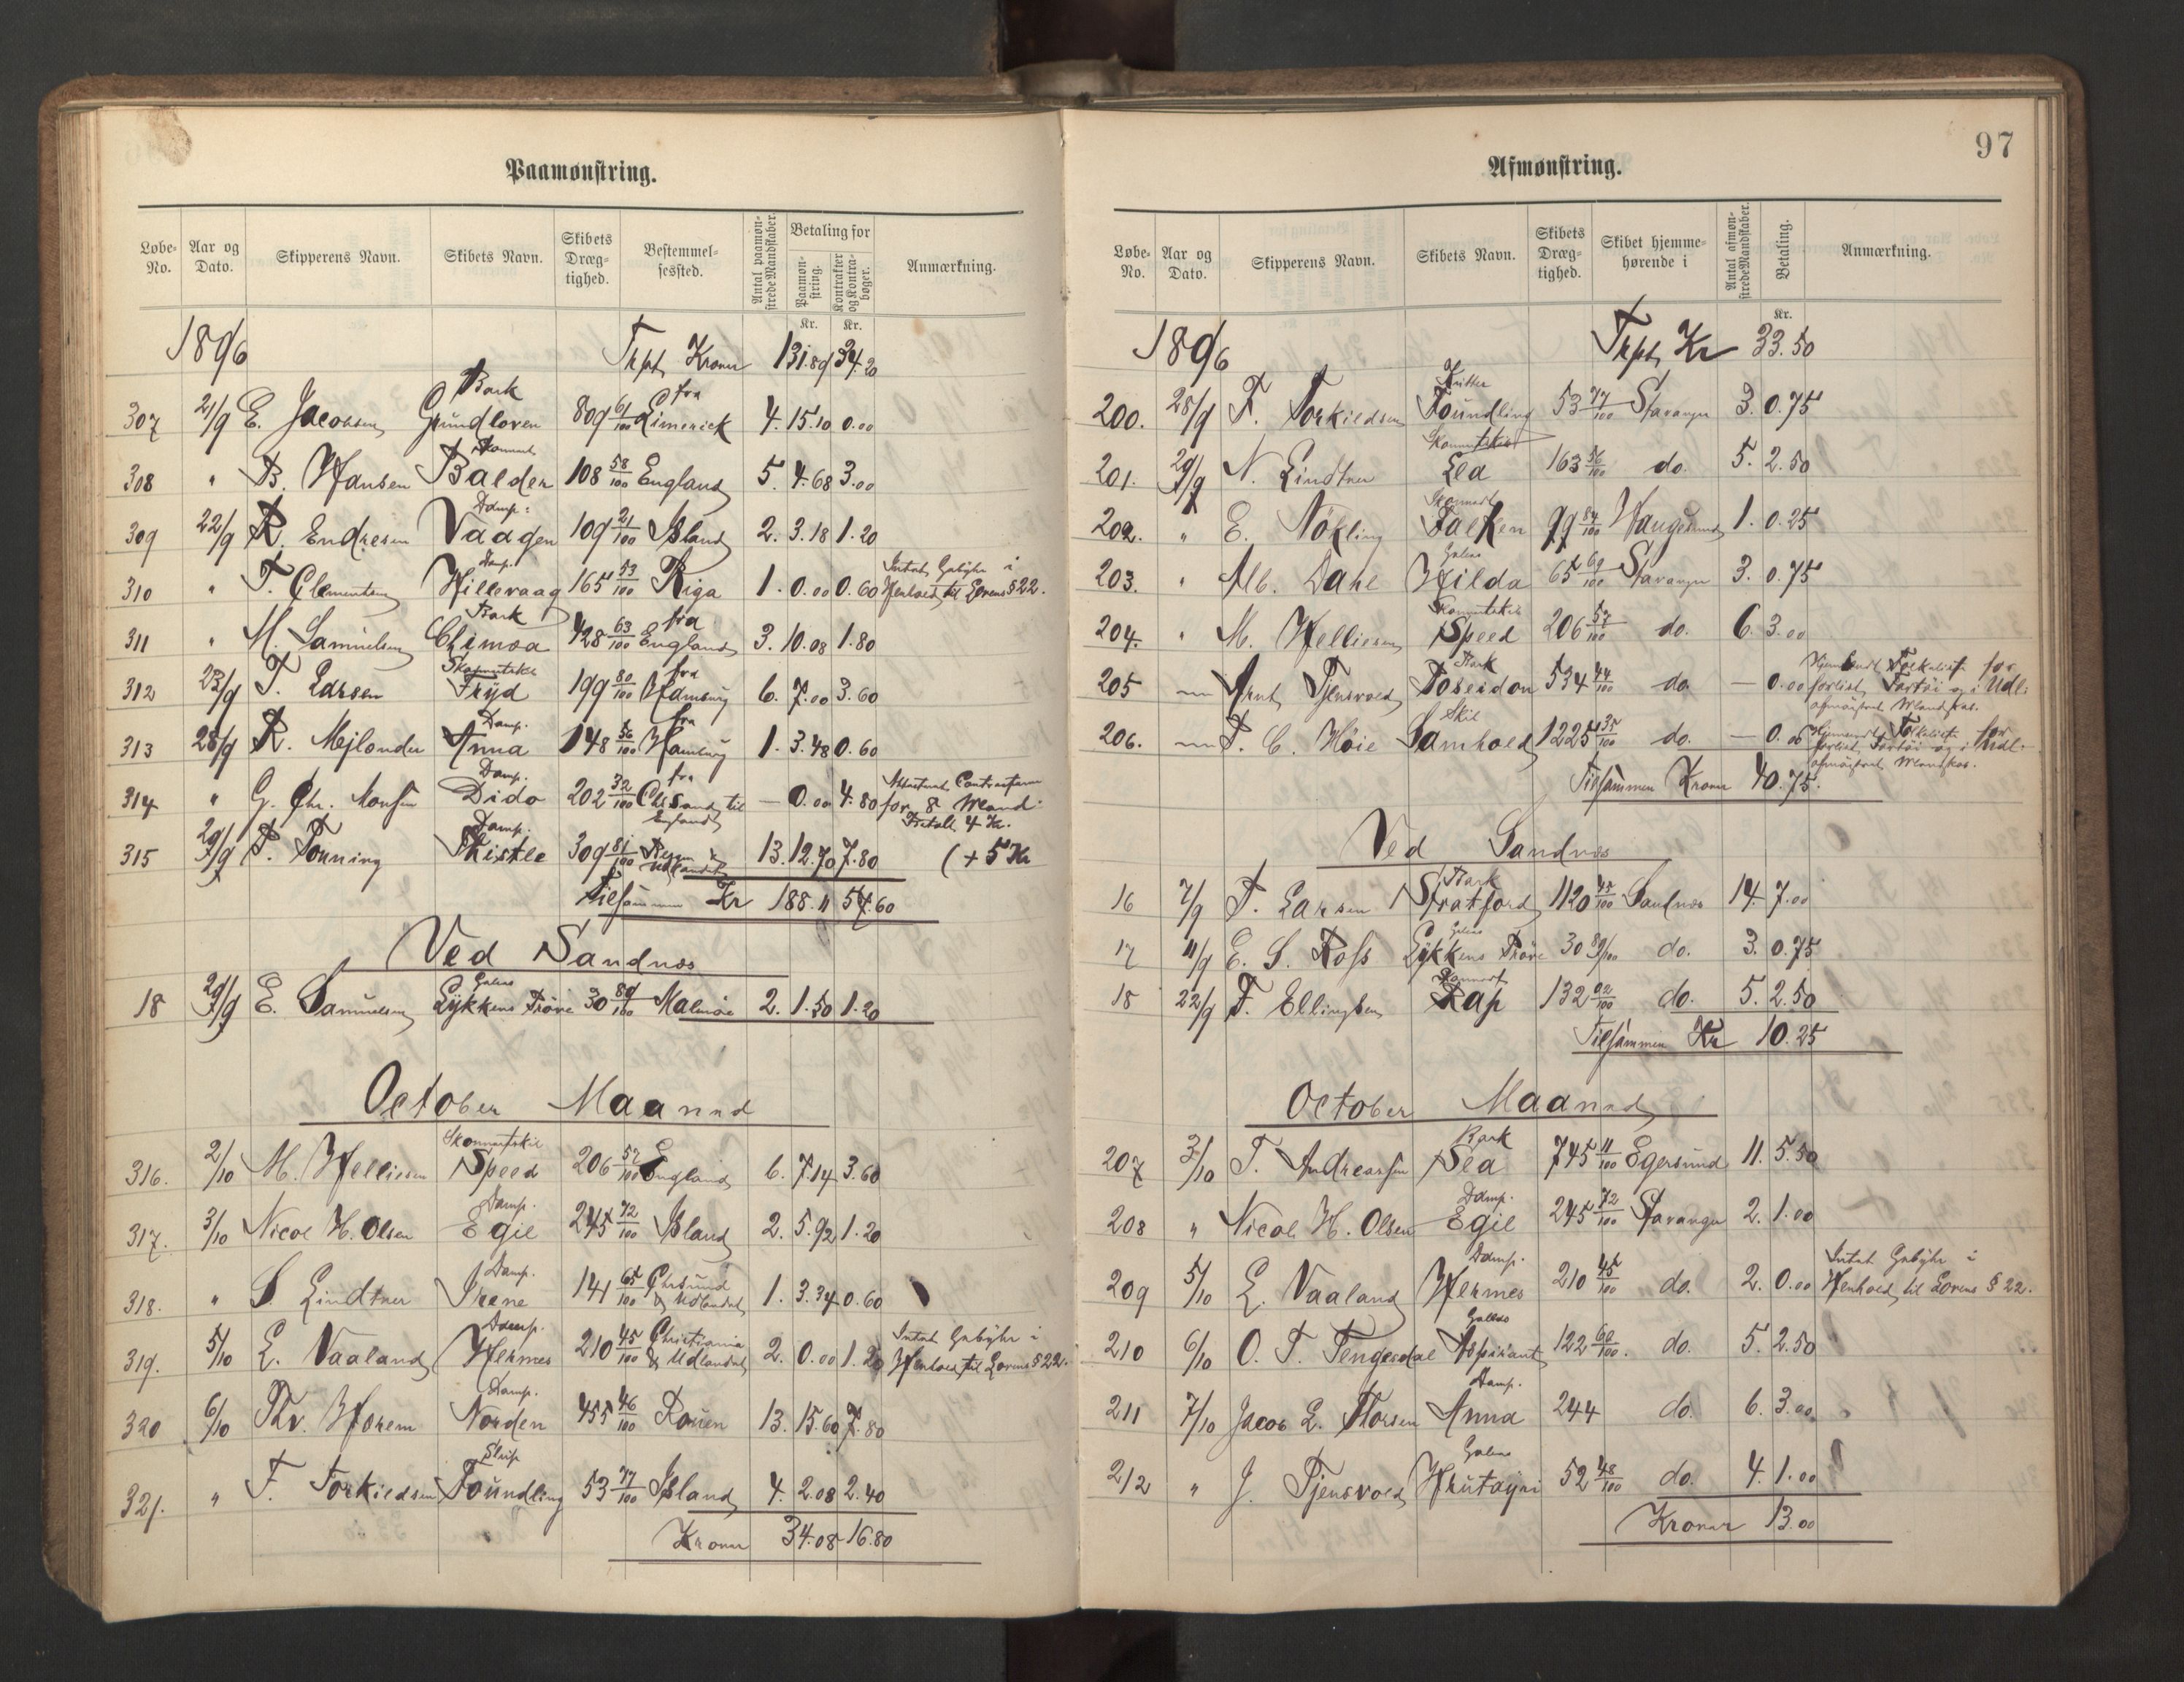 Paamønstring.
Løbe-No. Aar og Dato. Skipperens Navn. Skibets Navn. Skibets Dræg-tighed. Bestemmel-sessted. Antal paamøn-strede Mandskaber. Betaling for Paamøn-string. Kontrakter og Kontra-bøger. Anmærkning.
Kr. Kr.
1896 Trpt Kroner 131.89 34.20
307 21/9 E. Jacobsen Bark Grundloven 809 61/100 fra Limerick 4. 15.10 0.00
308 " B. Hansen Skonnert Balder 108 58/100 England 5. 4.68 3.00
309 22/9 R. Endresen Damp: Vaagen 109 21/100 Island 2. 3.18 1.20
310 " T. Clementsen Damp. Hillevaag 165 53/100 Riga 1. 0.00 0.60 Intet Gebyhr i Henhold til Lovens § 22.
311 " M. Samuelsen Bark Chimoa 428 63/100 fra England 3. 10.08 1.80
312 23/9 T. Larsen Skonnertskib Fryd 199 80/100 fra Hamburg 6. 7.00 3.60
313 28/9 R. Mejlænder Damp. Anna 148 56/100 fra Hamburg 1. 3.48 0.60
314 " G. Chr. Monsen Damp. Dido 202 32/100 fra Chrsand til England — 0.00 4.80 for 8 Mand. Betalt 4 Kr.
315 29/9 P. Tonning Damp. Thistle 309 81/100 & Udlandet 13. 12.70 7.80 (+ 5 Kr
Tilsammen Kr 188.11 57.60
Ved Sandnæs
18 29/9 E. Samuelsen Galeas Lykkens Prøve 30 89/100 Malmøe 2. 1.50 1.20
October Maaned
316. 2/10 M. Helliesen Skonnertskib Speed 206 57/100 England 6. 7.14 3.60
317. 3/10 Nicol H. Olsen Damp. Egil 245 72/100 Island 2. 5.92 1.20
318. " S. Lindtner Damp. Irene 141 65/100 Chrsund & Udlandet 1. 3.34 0.60
319. 5/10 L. Vaaland Damp. Hermes 210 45/100 Christiania & Udlandet 2. 0.00 1.20 Intet Gebyhr i Henhold til Lovens § 22.
320 6/10 Thv. Horem Damp. Norden 455 46/100 Rouen 13. 15.60 7.80
321. " F. Torkildsen Slup Foundling 53 77/100 Island 4. 2.08 2.40
Kroner 34.08 16.80
97
Afmønstring.
Løbe-No. Aar og Dato. Skipperens Navn. Skibets Navn. Skibets Dræg-tighed. Skibet hjemme-hørende i Antal afmøn-strede Mandskaber. Betaling. Anmærkning.
Kr.
1896 Trpt Kr 33.50
200. 28/9 F. Torkildsen Kutter Foundling 53 77/100 Stavanger 3. 0.75
201. 29/9 N. Lindtner Skonnertskib Lea 163 56/100 do. 5. 2.50
202. " E. Nökling Skonnert Falken 99 84/100 Haugesund 1. 0.25
203. " Alb. Dahl Galeas Hilda 65 69/100 Stavanger 3. 0.75
204. " M. Helliesen Skonnertskib Speed 206 57/100 do. 6. 3.00
205 — Arnt Tjensvold Bark Poseidon 534 44/100 do — 0.00 Hjemsendt Folkeliste for forlist Fartöi og i Udl. afmönstret Mandskab.
206. — P. C. Höie Skib Samhold 1225 35/100 do. — 0.00 Hjemsendt Folkeliste for forlist Fartöi og i Udl. afmönstret Mandskab.
Tilsammen Kroner 40.75.
Ved Sandnæs
16 7/9 T. Larsen Bark Stratford 1120 45/100 Sandnæs 14. 7.00
17 11/9 E. S. Ross Galeas Lykkens Prøve 30 89/100 do. 3. 0.75
18 22/9 F. Ellingsen Skonnert Rap 132 92/100 do. 5. 2.50
Tilsammen Kr 10.25
October Maaned
207 3/10 T. Andreassen Bark Sea 745 11/100 Egersund 11. 5.50
208 " Nicol. H. Olsen Damp. Egil 245 72/100 Stavanger 2. 1.00
209 5/10 L. Vaaland Damp. Hermes 210 45/100 do. 2. 0.00 Intet Gebyhr i Henhold til Lovens § 22.
210 6/10 O. T. Tengesdal Galeas Aspirant 122 60/100. do. 5. 2.50
211 7/10 Jacob L. Thorsen Damp. Anna 244 do. 6. 3.00
212 " J. Tjensvold Galeas 52 48/100 do. 4. 1.00
Kroner 13.00